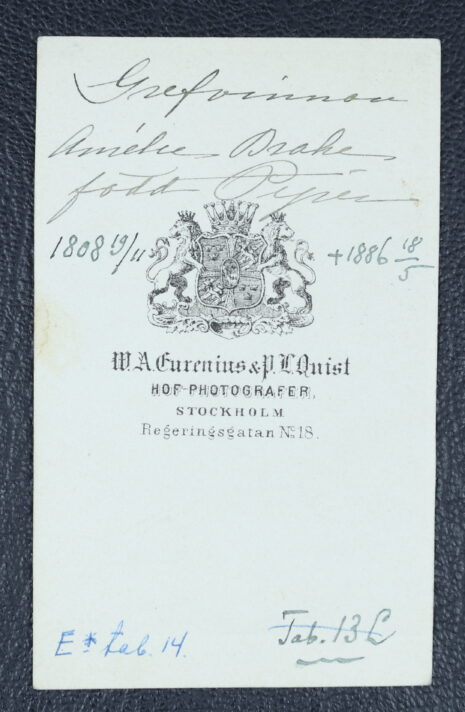 Grefvinnan
Amélie Brahe
född Piper
1808 19/11 + 1886 18/5
W.A. Eurenius & P.L. Quist
HOF-PHOTOGRAFER,
STOCKHOLM
Regeringsgatan No. 18.
E* tab. 14.
Tab. 13 L